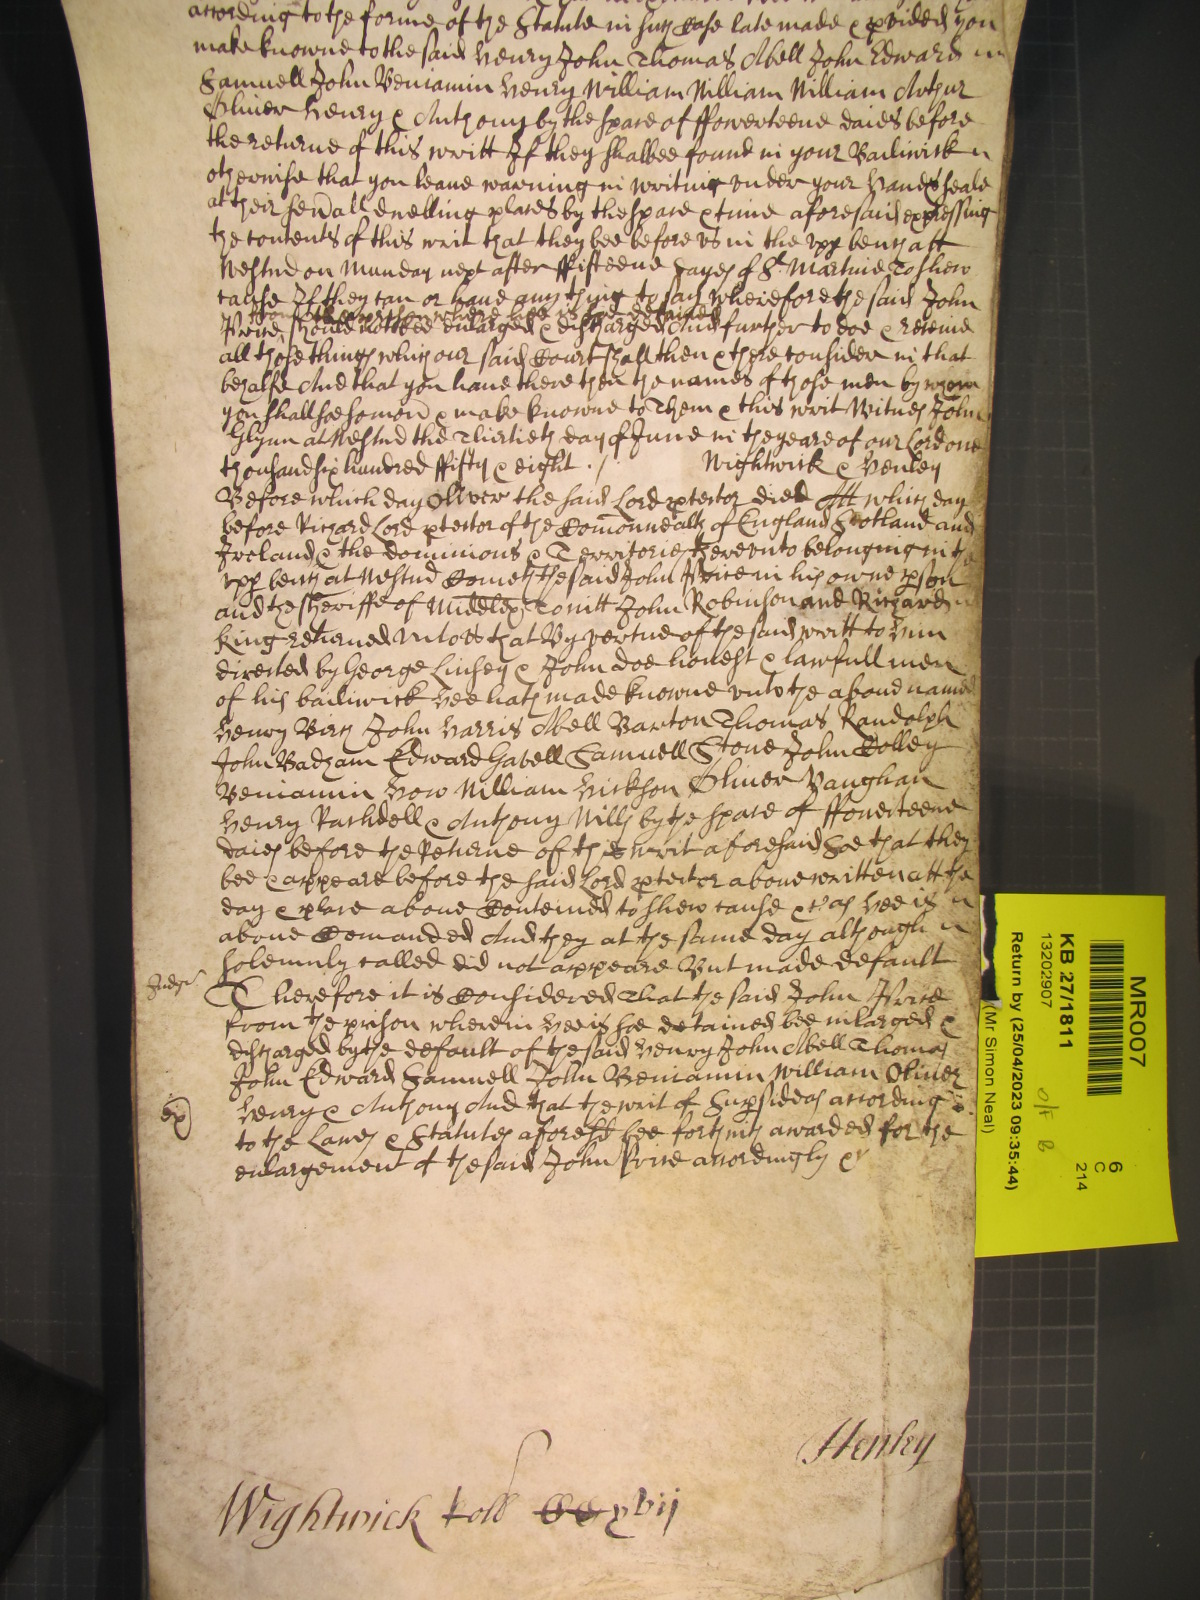 according to the forme of the Statute in such Case late made & pvided you
make knowne to the said Henry John Thomas Abell John Edward
Samuell John Beniamin Henry William William William Arthur
Oliuer Henry & Anthony by the space of ffowerteene daies before
the returne of this writt If they shalbee found in your Bailiwick
otherwise that you leaue warning in writing vnder your Hand & seale
at their seuall dwelling places by the space & time aforesaid expressing
the contents of this writ that they bee before vs in the vpp bench att
Westmr on Munday next after ffifteene dayes of St Martine To shew
cause If they can or haue any thing to say wherefore the said John
from the prison where hee is soe detained
Price should not bee enlarged & discharged And further to doe & receiue
all those things which our said Court shall then & there consider in that
behalfe And that you haue there then the names of those men by whom
you shall soe somon & make knowne to Them & this writ Witnes John
Glynn at Westmr the Thirtieth day of June in the yeare of our Lord one
thousand six hundred ffifty & eight ./ Wightwick & Henley
Before which day Oliver the said Lord ptector died Att which day
before Richard Lord ptector of the Comonwealth of England Scotland and
Ireland & the dominions & Territories therevnto belonging in the
vpp bench at Westmr Cometh the said John Price in his owne pson
and the Sheriffe of Middlex To witt John Robinson and Richard
King returned vnto vs that By vertue of the said writt to him
directed by George Linsey & John Doe honest & lawfull men
of his bailiwick hee hath made knowne vnto the aboue named
Henry Birch John Harris Abell Barton Thomas Randolph
John Badham Edward Gabell Samuell Stone John Colley
Beniamin How William Hickson Oliuer Vaughan
Henry Rashdell & Anthony Mills by the space of ffowerteene
daies before the Returne of the writ aforesaid Soe that they
bee & appeare before the said Lord ptector aboue written att the
day & place aboue Conteined to shew cause & as hee is
aboue Comanded And they at the same day although
solemnly called did not appeare But made default
Judgr Therefore it is Considered That the said John Price
from the prison wherein hee is soe detained bee inlarged &
discharged by the default of the said Henry John Abell Thomas
John Edward Samuell John Beniamin William Oliuer
Henry & Anthony And that the writ of Supsideas according
ex to the Lawes & Statutes aforesd bee forthwith awarded for the
enlargement of the said John Price accordingly &c
Henley
Wightwick Roll CCxvij
MR007
KB 27/1811
13202907
Return by (25/04/2023 09:35:44)
(Mr Simon Neal)
6
C
214